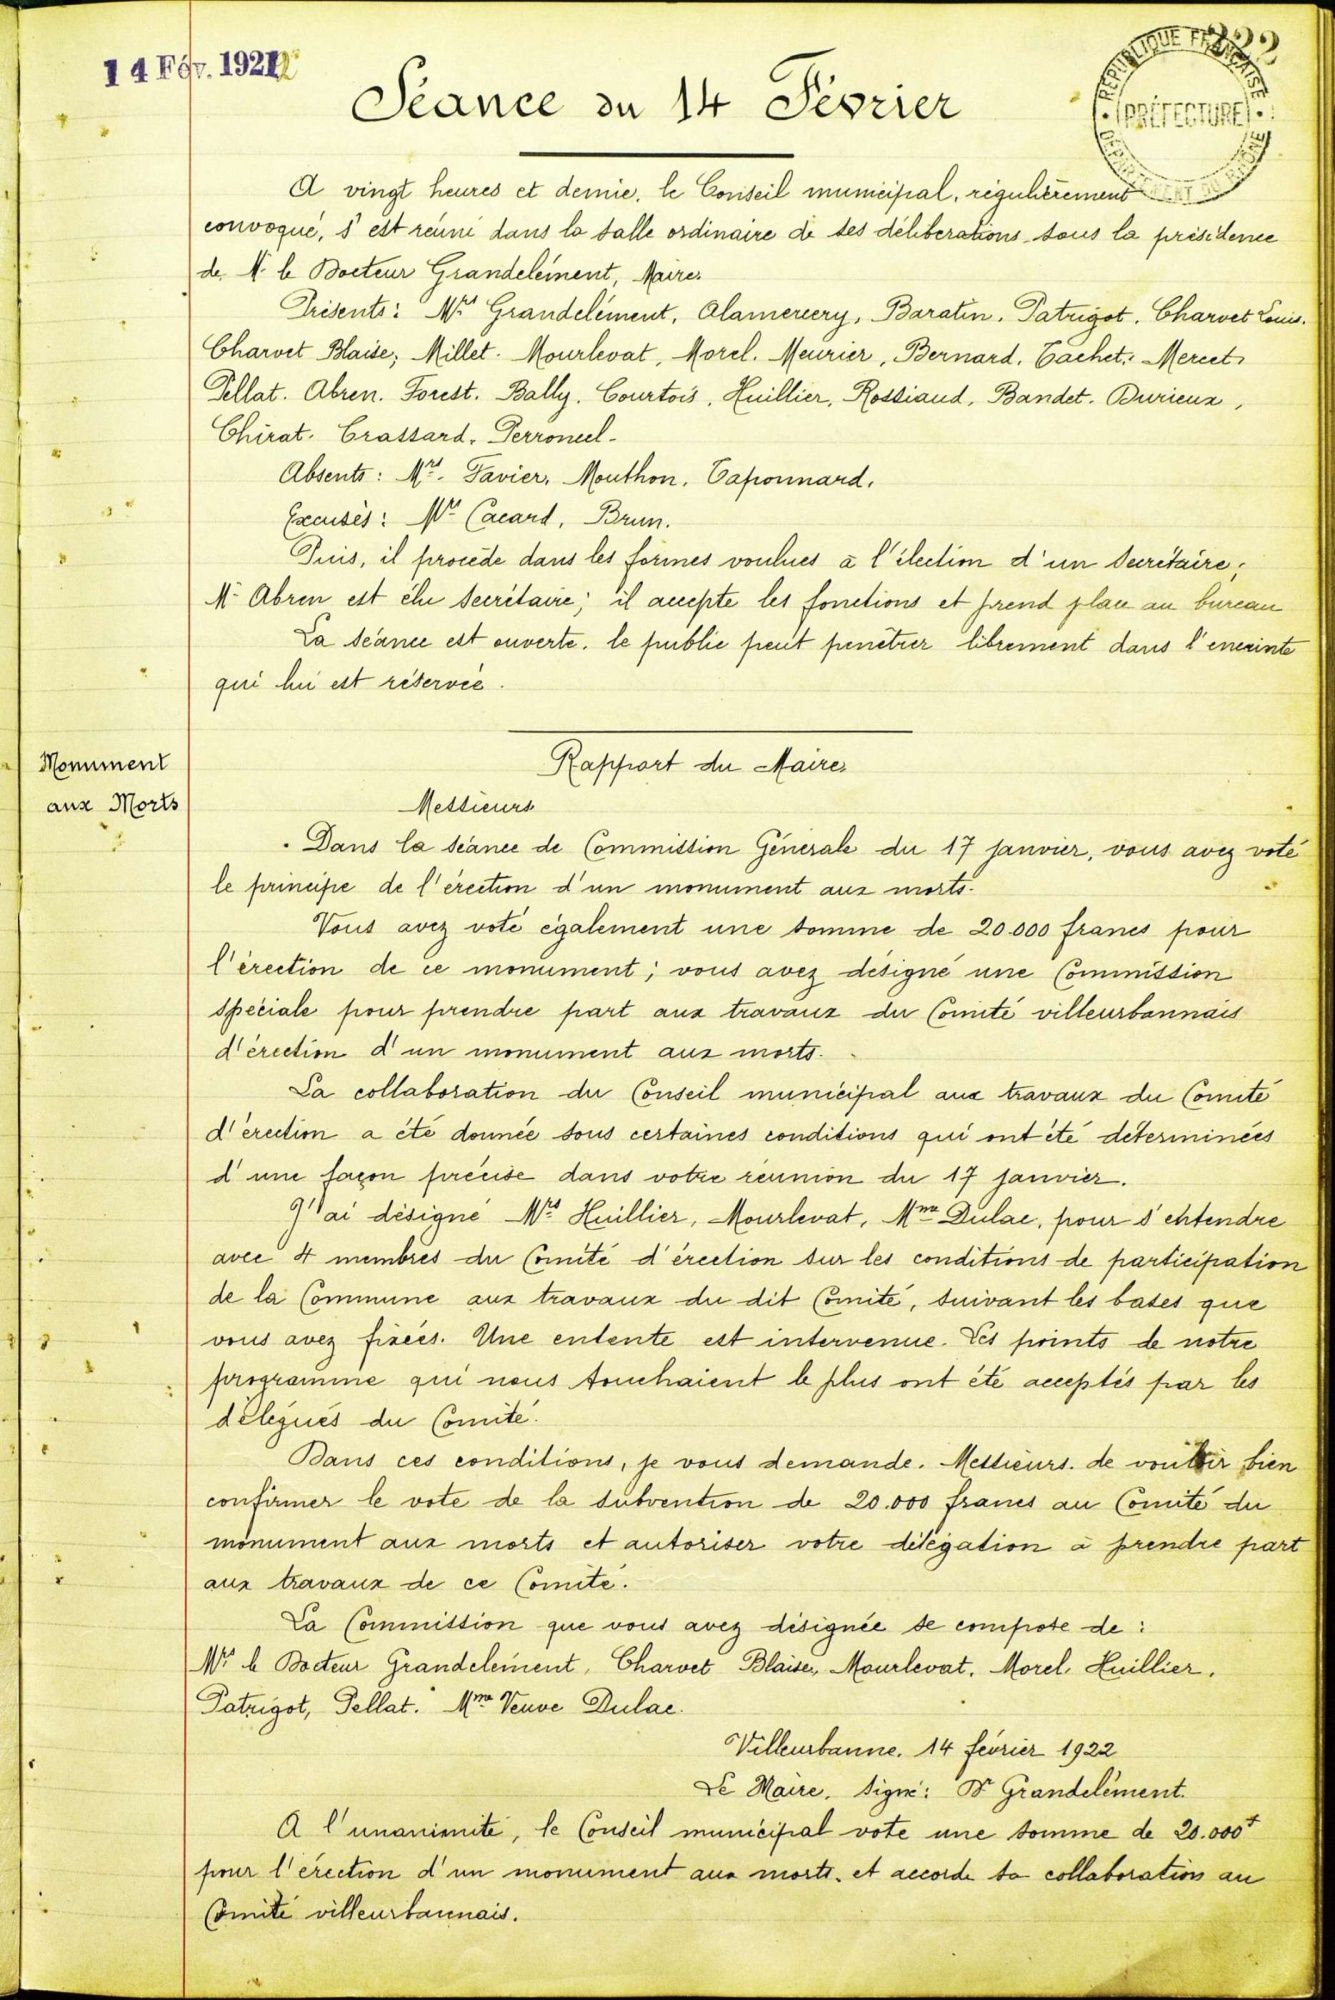 14 Fév. 1922
222
RÉPUBLIQUE FRANÇAISE
PRÉFECTURE
DÉPARTEMENT DU RHÔNE
Séance du 14 Février
A vingt heures et demie, le Conseil municipal, régulièrement
convoqué, s'est réuni dans la salle ordinaire de ses délibérations sous la présidence
de Mr le Docteur Grandclément, Maire.
Présents : Mrs Grandclément, Alamercery, Baratin, Patrigot, Charvet Louis,
Charvet Blaise, Millet, Mourlevat, Morel, Meurier, Bernard, Cachet, Mercet,
Pellat, Abren, Forest, Bally, Courtois, Huillier, Rossiaud, Bandet, Durieux,
Chirat, Crassard, Perroncel.
Absents : Mrs Favier, Mouthon, Taponnard.
Excusés : Mrs Cacard, Brun.
Puis, il procède dans les formes voulues à l'élection d'un secrétaire ;
Mr Abren est élu secrétaire ; il accepte les fonctions et prend place au bureau
La séance est ouverte, le public peut pénétrer librement dans l'enceinte
qui lui est réservée.
Monument
aux Morts
Rapport du Maire
Messieurs
Dans la séance de Commission Générale du 17 janvier, vous avez voté
le principe de l'érection d'un monument aux morts.
Vous avez voté également une somme de 20.000 francs pour
l'érection de ce monument ; vous avez désigné une Commission
spéciale pour prendre part aux travaux du Comité villeurbannais
d'érection d'un monument aux morts.
La collaboration du Conseil municipal aux travaux du Comité
d'érection a été donnée sous certaines conditions qui ont été déterminées
d'une façon précise dans votre réunion du 17 janvier.
J'ai désigné Mrs Huillier, Mourlevat, Mme Dulac, pour s'entendre
avec 4 membres du Comité d'érection sur les conditions de participation
de la Commune aux travaux du dit Comité, suivant les bases que
vous avez fixées. Une entente est intervenue. Les points de notre
programme qui nous touchaient le plus ont été acceptés par les
délégués du Comité.
Dans ces conditions, je vous demande, Messieurs, de vouloir bien
confirmer le vote de la subvention de 20.000 francs au Comité du
monument aux morts et autoriser votre délégation à prendre part
aux travaux de ce Comité.
La Commission que vous avez désignée se compose de :
Mrs le Docteur Grandclément, Charvet Blaise, Mourlevat, Morel, Huillier,
Patrigot, Pellat. Mme Veuve Dulac.
Villeurbanne, 14 février 1922
Le Maire, signé : Dr Grandclément.
A l'unanimité, le Conseil municipal vote une somme de 20.000f
pour l'érection d'un monument aux morts, et accorde sa collaboration au
Comité villeurbannais.